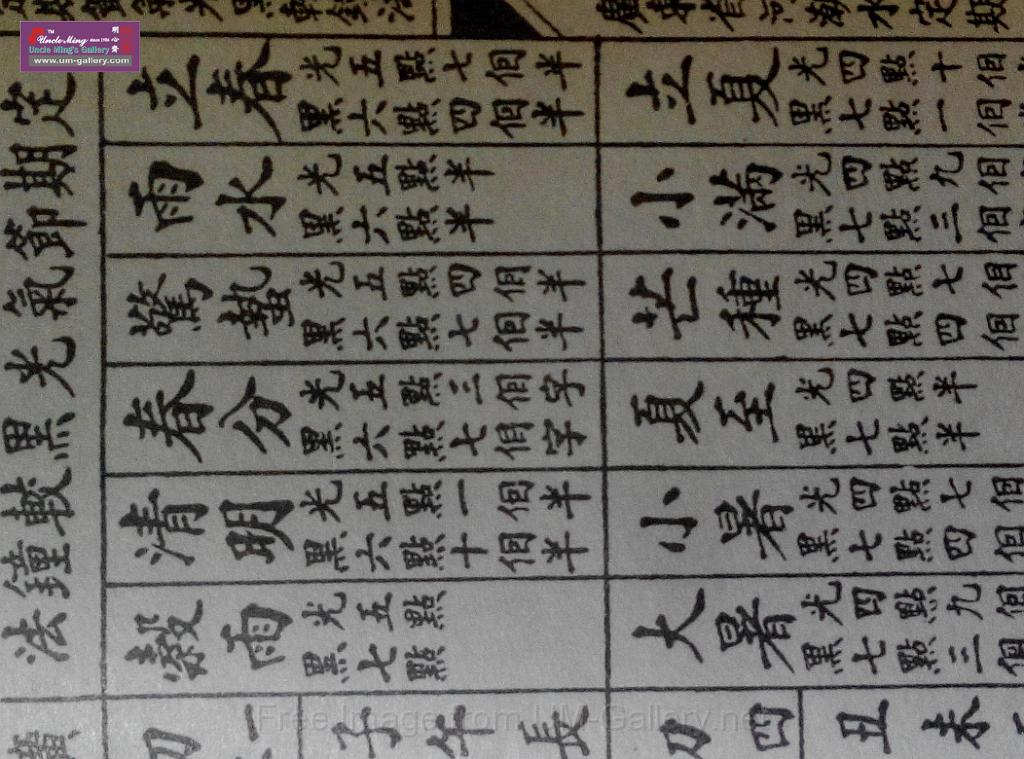 Uncle Ming since 1984
Uncle Ming's Gallery
www.um-gallery.com
定期節氣光黑較鐘法
立春
光五點七個半
黑六點四個半
雨水
光五點半
黑六點半
驚蟄
光五點四個半
黑六點七個半
春分
光五點三個字
黑六點七個字
清明
光五點一個半
黑六點十個半
穀雨
光五點
黑七點
立夏
光四點十個
黑七點一個
小滿
光四點九個
黑七點三個
芒種
光四點七個
黑七點四個
夏至
光四點半
黑七點半
小暑
光四點七個
黑七點四個
大暑
光四點九個
黑七點三個
子午長
丑未
Free Image from UM-Gallery.net